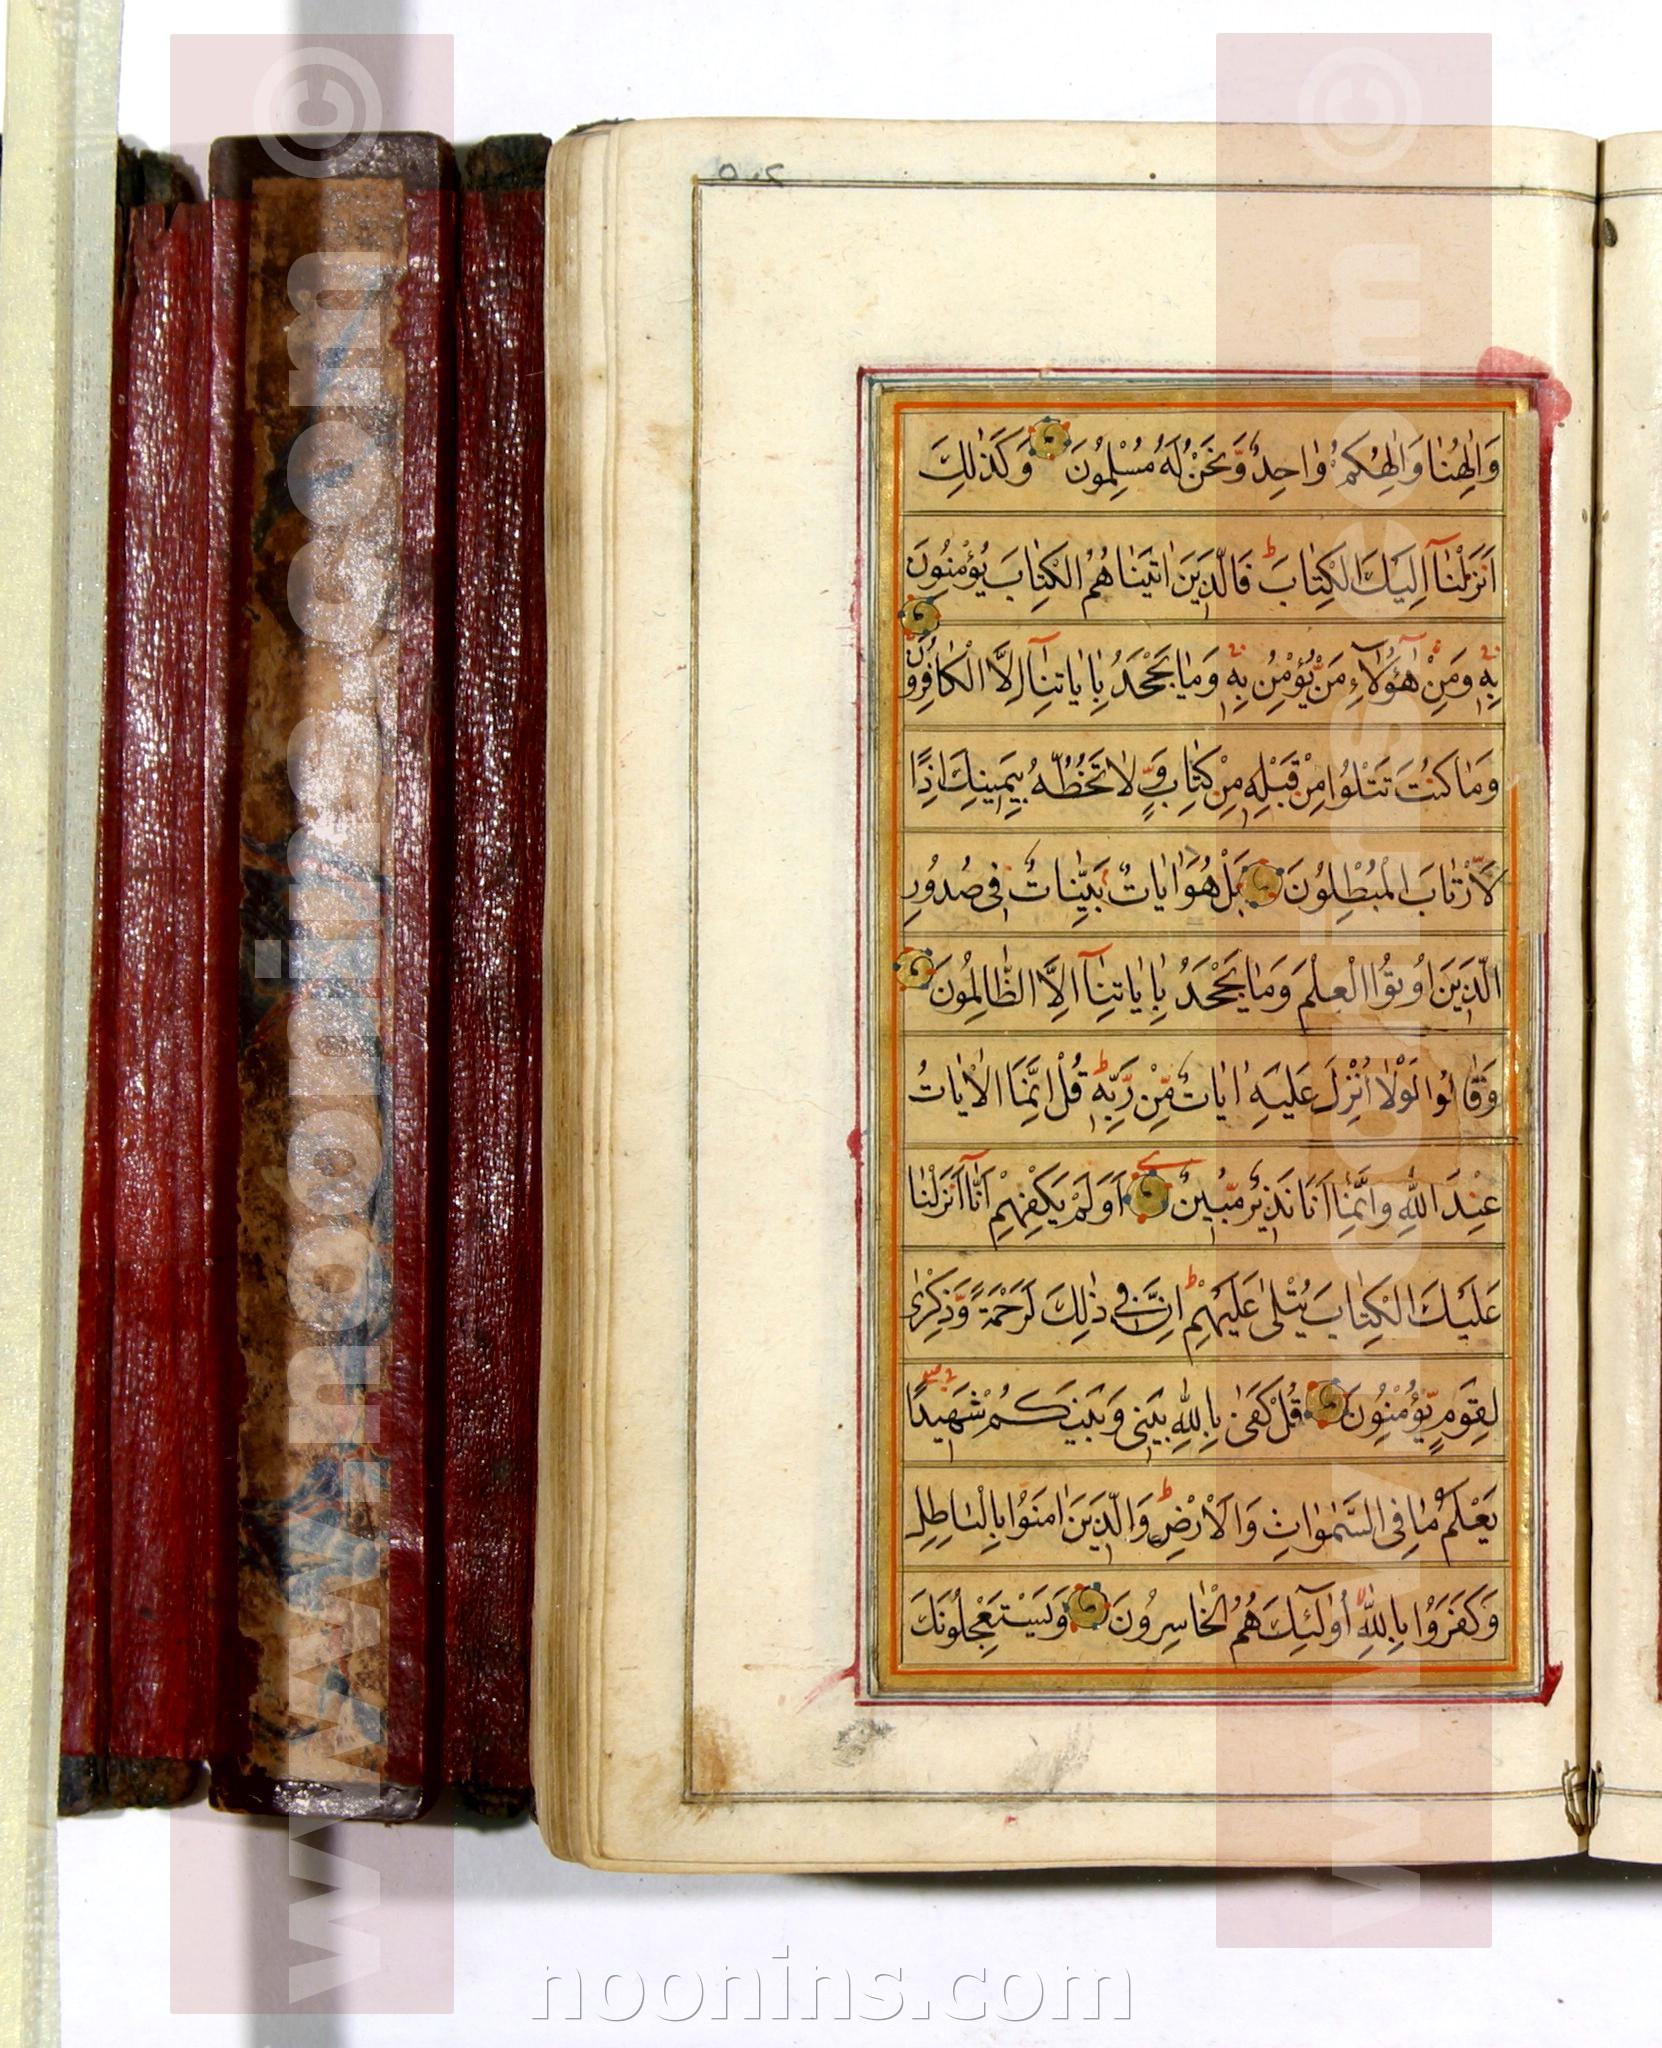 ۵۰۲
وَاِلٰهُنٰا وَاِلٰهُكُمْ وٰاحِدٌ وَّنَحْنُ لَهُ مُسْلِمُونَ وَكَذٰلِكَ
اَنْزَلْنٰآ اِلَيْكَ الْكِتٰابَ ط فَالَّذِينَ اٰتَيْنٰاهُمُ الْكِتٰابَ يُؤْمِنُونَ
بِهِ وَمِنْ هٰٓؤُلَآءِ مَنْ يُّؤْمِنُ بِهِ وَمٰا يَجْحَدُ بِاٰيٰاتِنٰآ اِلَّا الْكٰافِرُونَ
وَمٰا كُنْتَ تَتْلُوا مِنْ قَبْلِهِ مِنْ كِتٰابٍ وَّلٰا تَخُطُّهُ بِيَمِينِكَ اِذًا
لَّارْتٰابَ الْمُبْطِلُونَ بَلْ هُوَ اٰيٰاتٌ بَيِّنٰاتٌ فِى صُدُورِ
الَّذِينَ اُوتُوا الْعِلْمَ وَمٰا يَجْحَدُ بِاٰيٰاتِنٰآ اِلَّا الظّٰالِمُونَ
وَقٰالُوا لَوْلٰا اُنْزِلَ عَلَيْهِ اٰيٰاتٌ مِّنْ رَّبِّهِ ط قُلْ اِنَّمَا الْاٰيٰاتُ
عِنْدَ اللّٰهِ وَاِنَّمٰا اَنَا نَذِيرٌ مُّبِينٌ اَوَلَمْ يَكْفِهِمْ اَنّٰآ اَنْزَلْنٰا
عَلَيْكَ الْكِتٰابَ يُتْلٰى عَلَيْهِمْ ط اِنَّ فِى ذٰلِكَ لَرَحْمَةً وَّذِكْرٰى
لِقَوْمٍ يُّؤْمِنُونَ قُلْ كَفٰى بِاللّٰهِ بَيْنِى وَبَيْنَكُمْ شَهِيدًا
يَعْلَمُ مٰا فِى السَّمٰوٰاتِ وَالْاَرْضِ ط وَالَّذِينَ اٰمَنُوا بِالْبٰاطِلِ
وَكَفَرُوا بِاللّٰهِ لا اُولٰٓئِكَ هُمُ الْخٰاسِرُونَ وَيَسْتَعْجِلُونَكَ
www.noonins.com ©
www.noonins.com ©
noonins.com